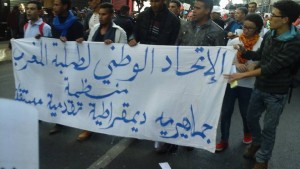 الإتحاد الوطني لطلبة المغرب
منظمة
جماهيرية ديمقراطية تقدمية مستقلة